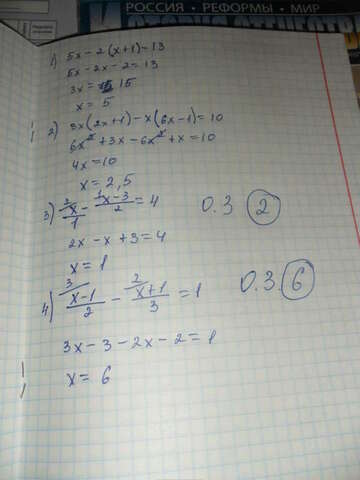 РОССИЯ • РЕФОРМЫ • МИР
1) 5x - 2(x+1) = 13
5x - 2x - 2 = 13
3x = 15
x = 5
2) 3x(2x+1) - x(6x-1) = 10
6x² + 3x - 6x² + x = 10
4x = 10
x = 2,5
3) ²x/1 - ¹x-3/2 = 4 0.3 2
2x - x + 3 = 4
x = 1
4) ³x-1/2 - ²x+1/3 = 1 0.3. 6
3x - 3 - 2x - 2 = 1
x = 6